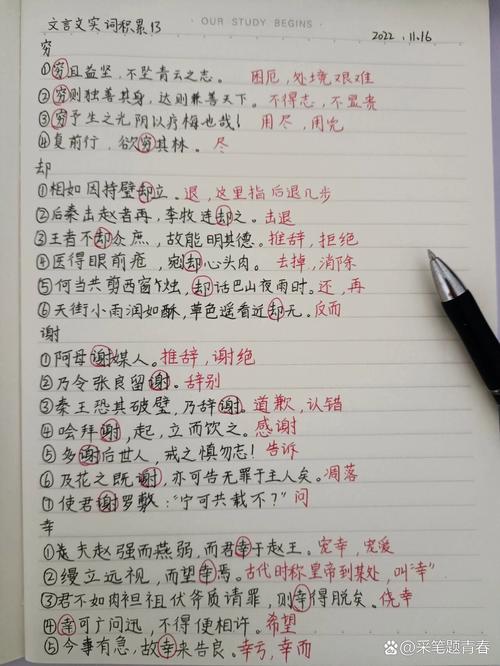 · OUR STUDY BEGINS ·
文言文实词积累13 2022.11.16
穷
①穷且益坚,不坠青云之志。 困厄,处境艰难
②穷则独善其身,达则兼善天下。不得志,不显贵
③穷予生之光阴以疗梅也哉! 用尽,用完
④复前行,欲穷其林。尽
却
①相如因持璧却立。退,这里指后退几步
②后秦击赵者再,李牧连却之。击退
③王者不却众庶,故能明其德。推辞,拒绝
④医得眼前疮,宛却心头肉。 去掉,消除
⑤何当共剪西窗烛,却话巴山夜雨时。还,再
⑥天街小雨润如酥,草色遥看近却无。反而
谢
①阿母谢媒人。推辞,谢绝
②乃令张良留谢。辞别
③秦王恐其破璧,乃辞谢。道歉,认错
④哙拜谢,起,立而饮之。感谢
⑤多谢后世人,戒之慎勿忘!告诉
⑥及花之既谢,亦可告无罪于主人矣。凋落
⑦使君谢罗敷:“宁可共载不?”问
幸
①夫赵强而燕弱,而君幸于赵王。宠幸,宠爱
②缦立远视,而望幸焉。古代时称皇帝到某处,叫“幸”
③君不如肉袒伏斧质请罪,则幸得脱矣。侥幸
④幸可广问讯,不得便相许。希望
⑤今事有急,故幸来告良。幸亏,幸而
@采笔题青春